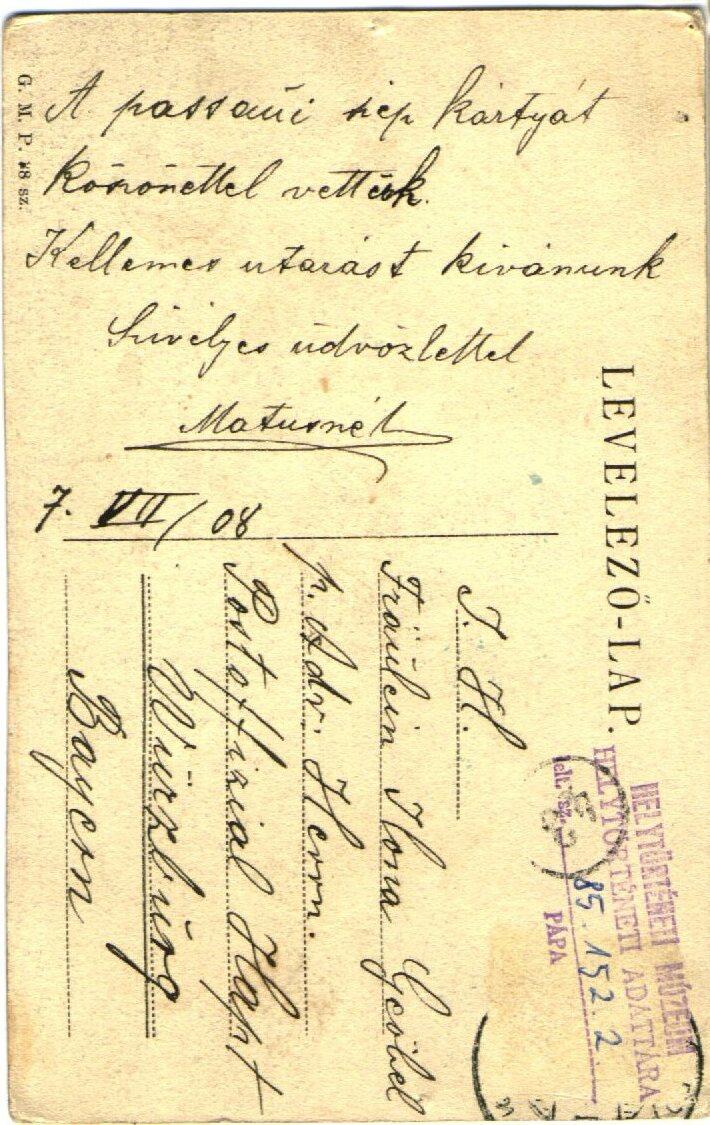 A passaui szép kártyát
köszönettel vettük.
Kellemes utazást kivánunk
Szivélyes üdvözlettel
Matusné
7. VII/08
G. M. P. 18 sz.
LEVELEZŐ-LAP.
T. H.
Fräulein Ilona Göbel
p. Adr. Herrn.
Postoffizial Hapt
Würzburg
Bayern
HELYTÖRTÉNETI MÚZEUM
HELYTÖRTÉNETI ADATTÁRA
lelt. sz. 85.152.2
PÁPA